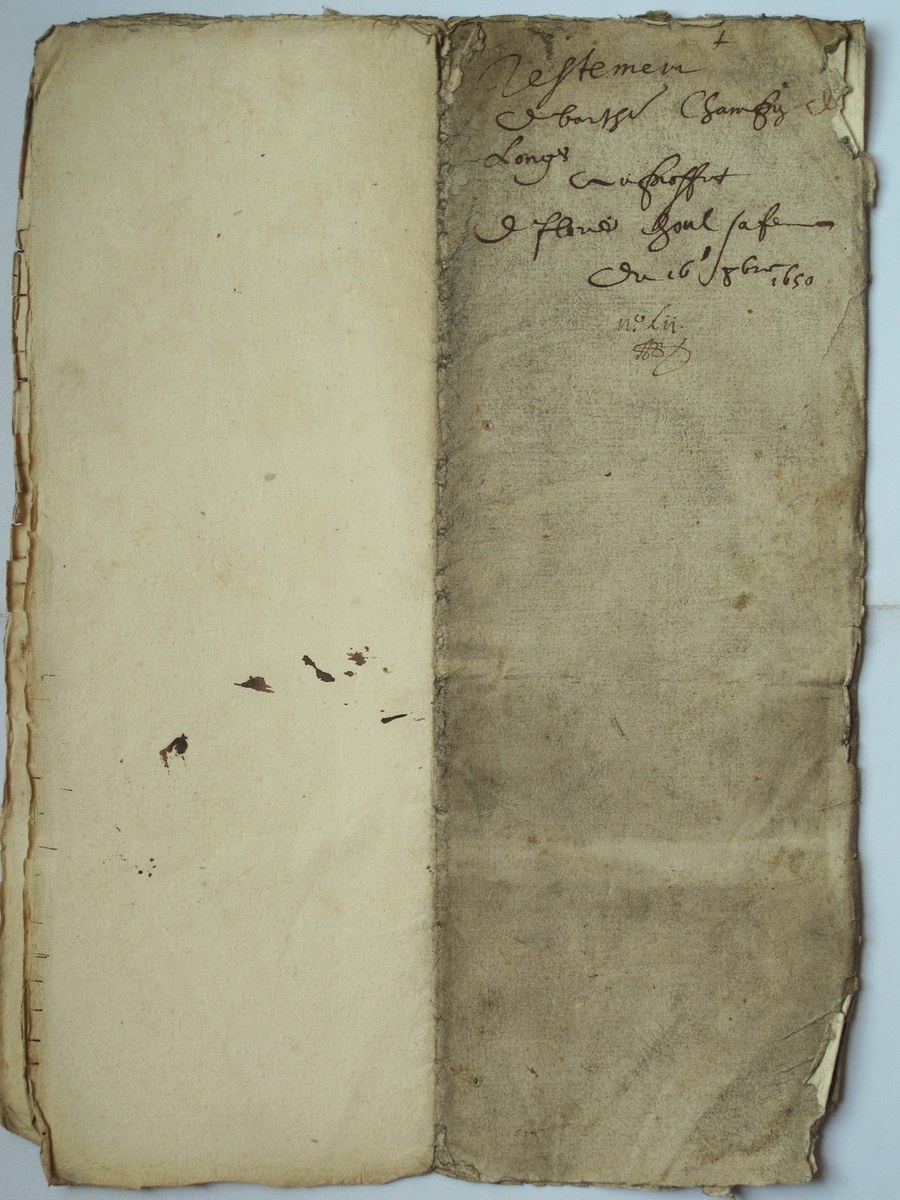 Testemen
de barthe Champ de
Longe
au proffit
de flore Houl sa fe
Du 16 8bre 1650
n.º Lii.